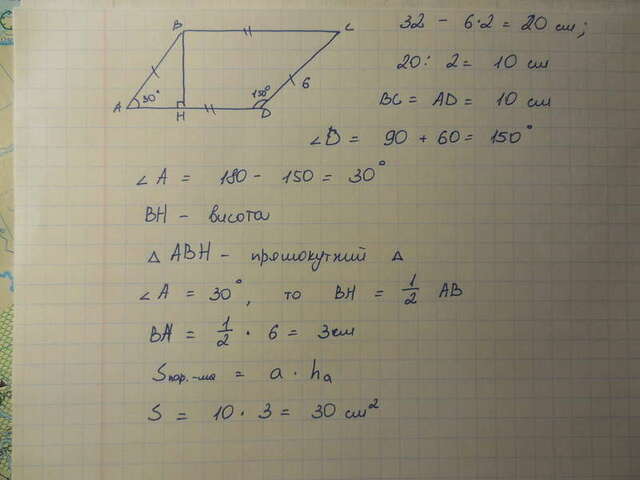 B C
A 30° H 150° D 6
32 - 6·2 = 20 см;
20 : 2 = 10 см
BC = AD = 10 см
∠D = 90 + 60 = 150°
∠A = 180 - 150 = 30°
BH - висота
△ ABH - прямокутний △
∠A = 30°, то BH = 1/2 AB
BH = 1/2 · 6 = 3 см
Sпар.-ма = a · hₐ
S = 10 · 3 = 30 см²